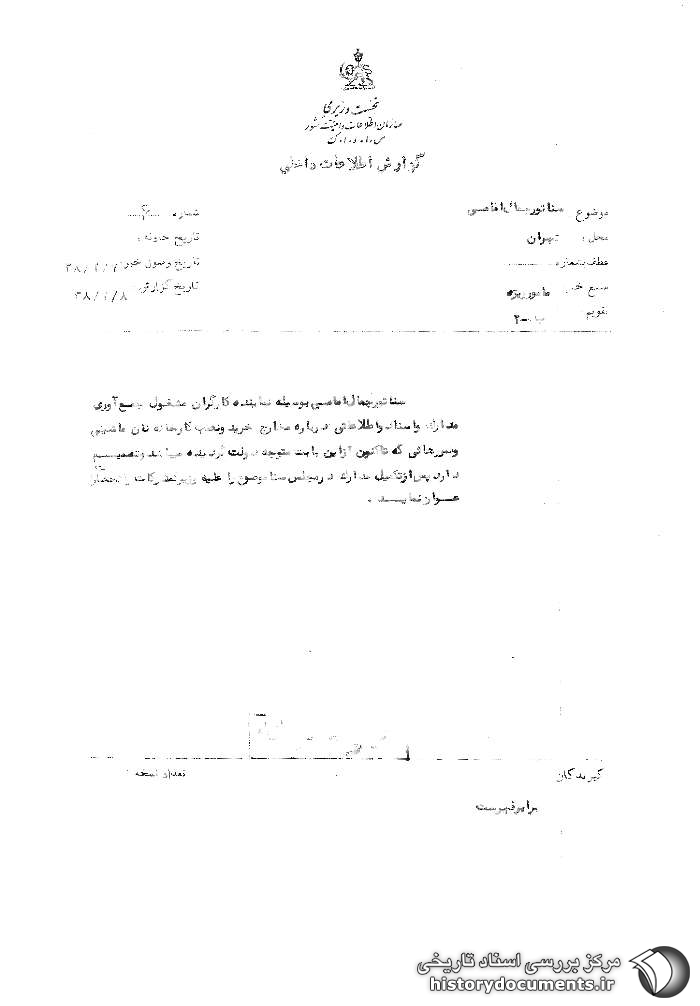 نخست وزیری
سازمان اطلاعات و امنیت کشور
س.ا.و.ا.ک
گزارش اطلاعات داخلی
موضوع سناتور جمال امامی
شماره
محل : تهران
تاریخ حادثه :
عطف بشماره
تاریخ وصول خبر
منبع خبر مامور ویژه
تاریخ گزارش ۳۸/۱/۸
تقویم ب-۲
سناتور جمال امامی بوسیله نماینده کارگران مشغول جمع آوری
مدارک و اسناد و اطلاعاتی درباره مخارج خرید و نصب کارخانه نان ماشینی
و ضررهائی که تاکنون از این بابت متوجه دولت گردیده میباشد و تصمیم
دارد پس از تکمیل مدارک در مجلس سنا موضوع را علیه وزیر
عنوان نماید .
گیرندگان
تعداد نسخه :
برابر فهرست
مرکز بررسی اسناد تاریخی
historydocuments.ir